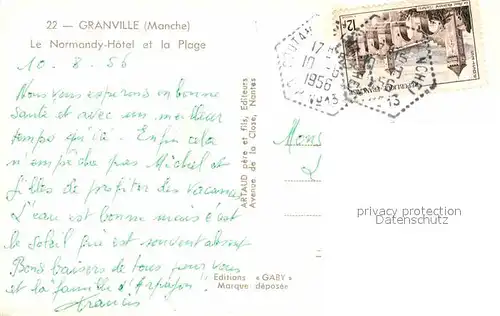 22 — GRANVILLE (Manche)
Le Normandy-Hôtel et la Plage
10.8.56
Nous vous espérons en bonne
santé et avec un meilleur
temps qu'ici. Enfin cela
n'empêche pas Michel et
filles de profiter des vacances
L'eau est bonne mais c'est
le soleil qui est souvent absent
Bons baisers de tous pour vous
et la famille d'Arpajon
Francis
ARTAUD père et fils, Editeurs
Avenue de la Close, Nantes
Editions « GABY »
Marque déposée
Mons
12F
1956
privacy protection
Datenschutz